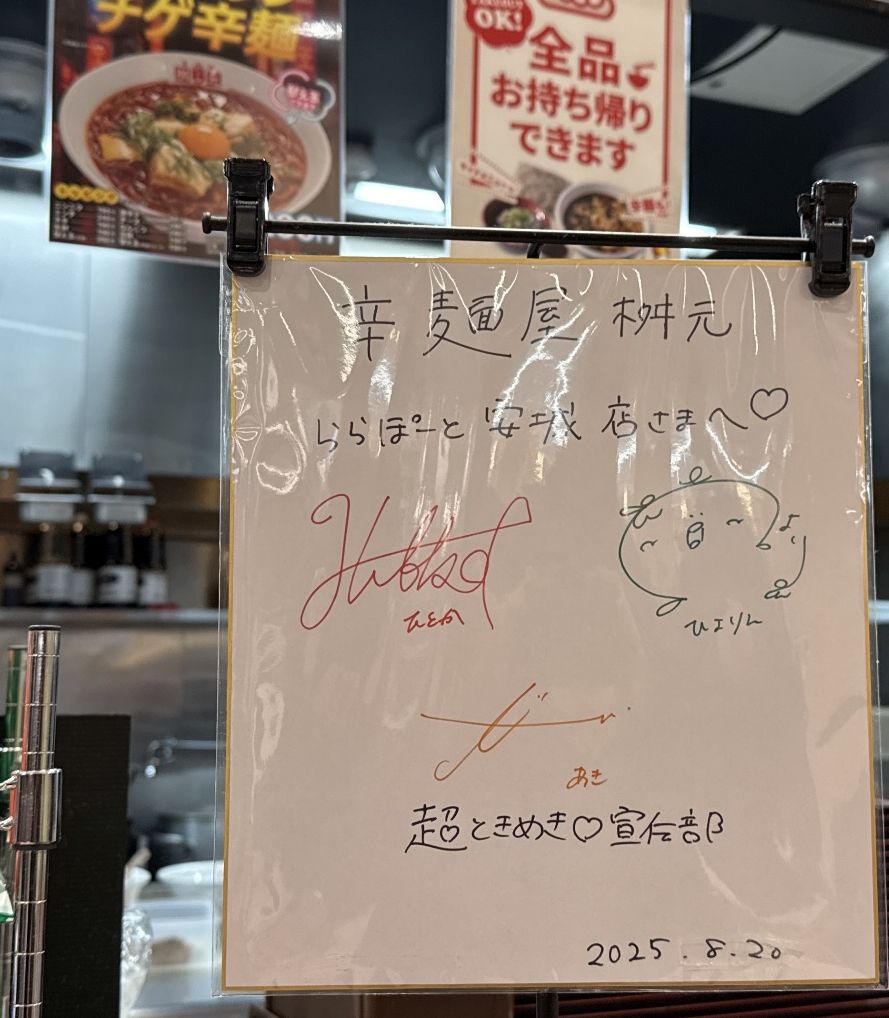 チゲ辛麺
OK!
全品
お持ち帰り
できます
辛麺屋 桝元
ららぽーと 安城 店さまへ♡
ひとか
ひよりん
あき
超ときめき♡宣伝部
2025.8.20